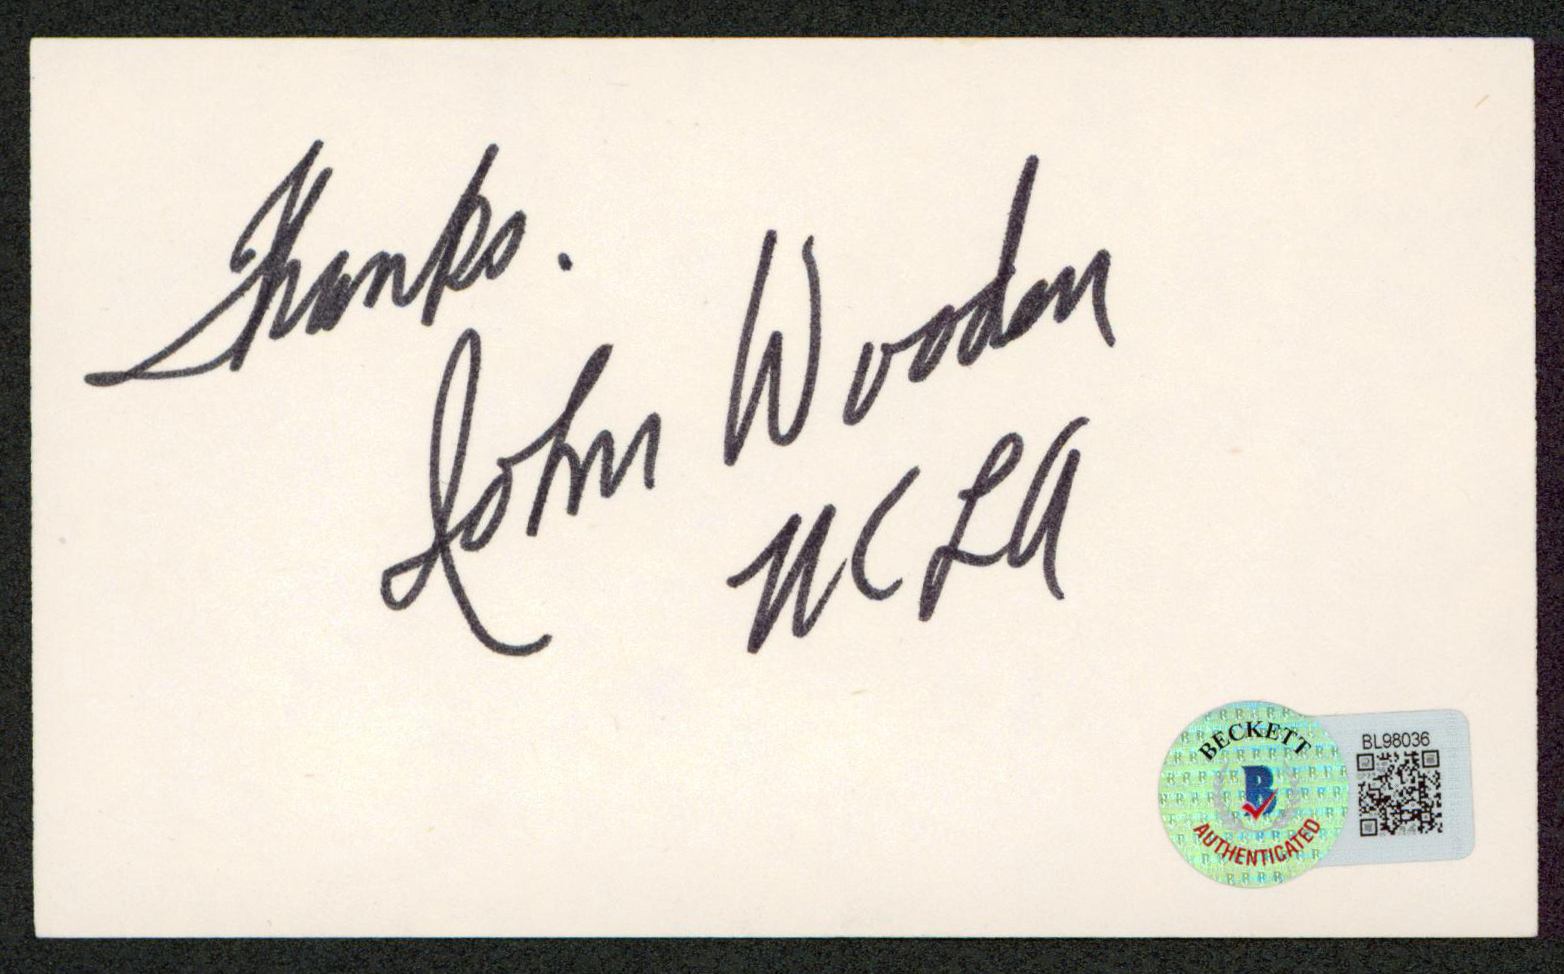 Thanks.
John Wooden
UCLA
BECKETT
B
AUTHENTICATED
BL98036